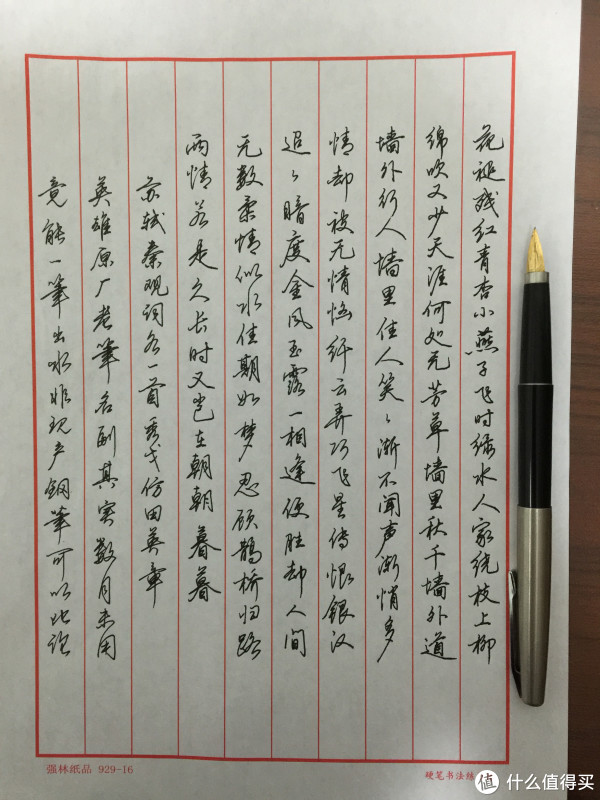 花褪残红青杏小燕子飞时绿水人家绕枝上柳
绵吹又少天涯何处无芳草墙里秋千墙外道
墙外行人墙里佳人笑〻渐不闻声渐悄多
情却被无情恼纤云弄巧飞星传恨银汉
迢〻暗度金风玉露一相逢便胜却人间
无数柔情似水佳期如梦忍顾鹊桥归路
两情若是久长时又岂在朝朝暮暮
苏轼秦观词各一首秀戈仿田英章
英雄原厂老筆名副其实数月未用
竟能一筆出水非现产钢筆可以比论
强林纸品 929-16
硬笔书法练
值 什么值得买